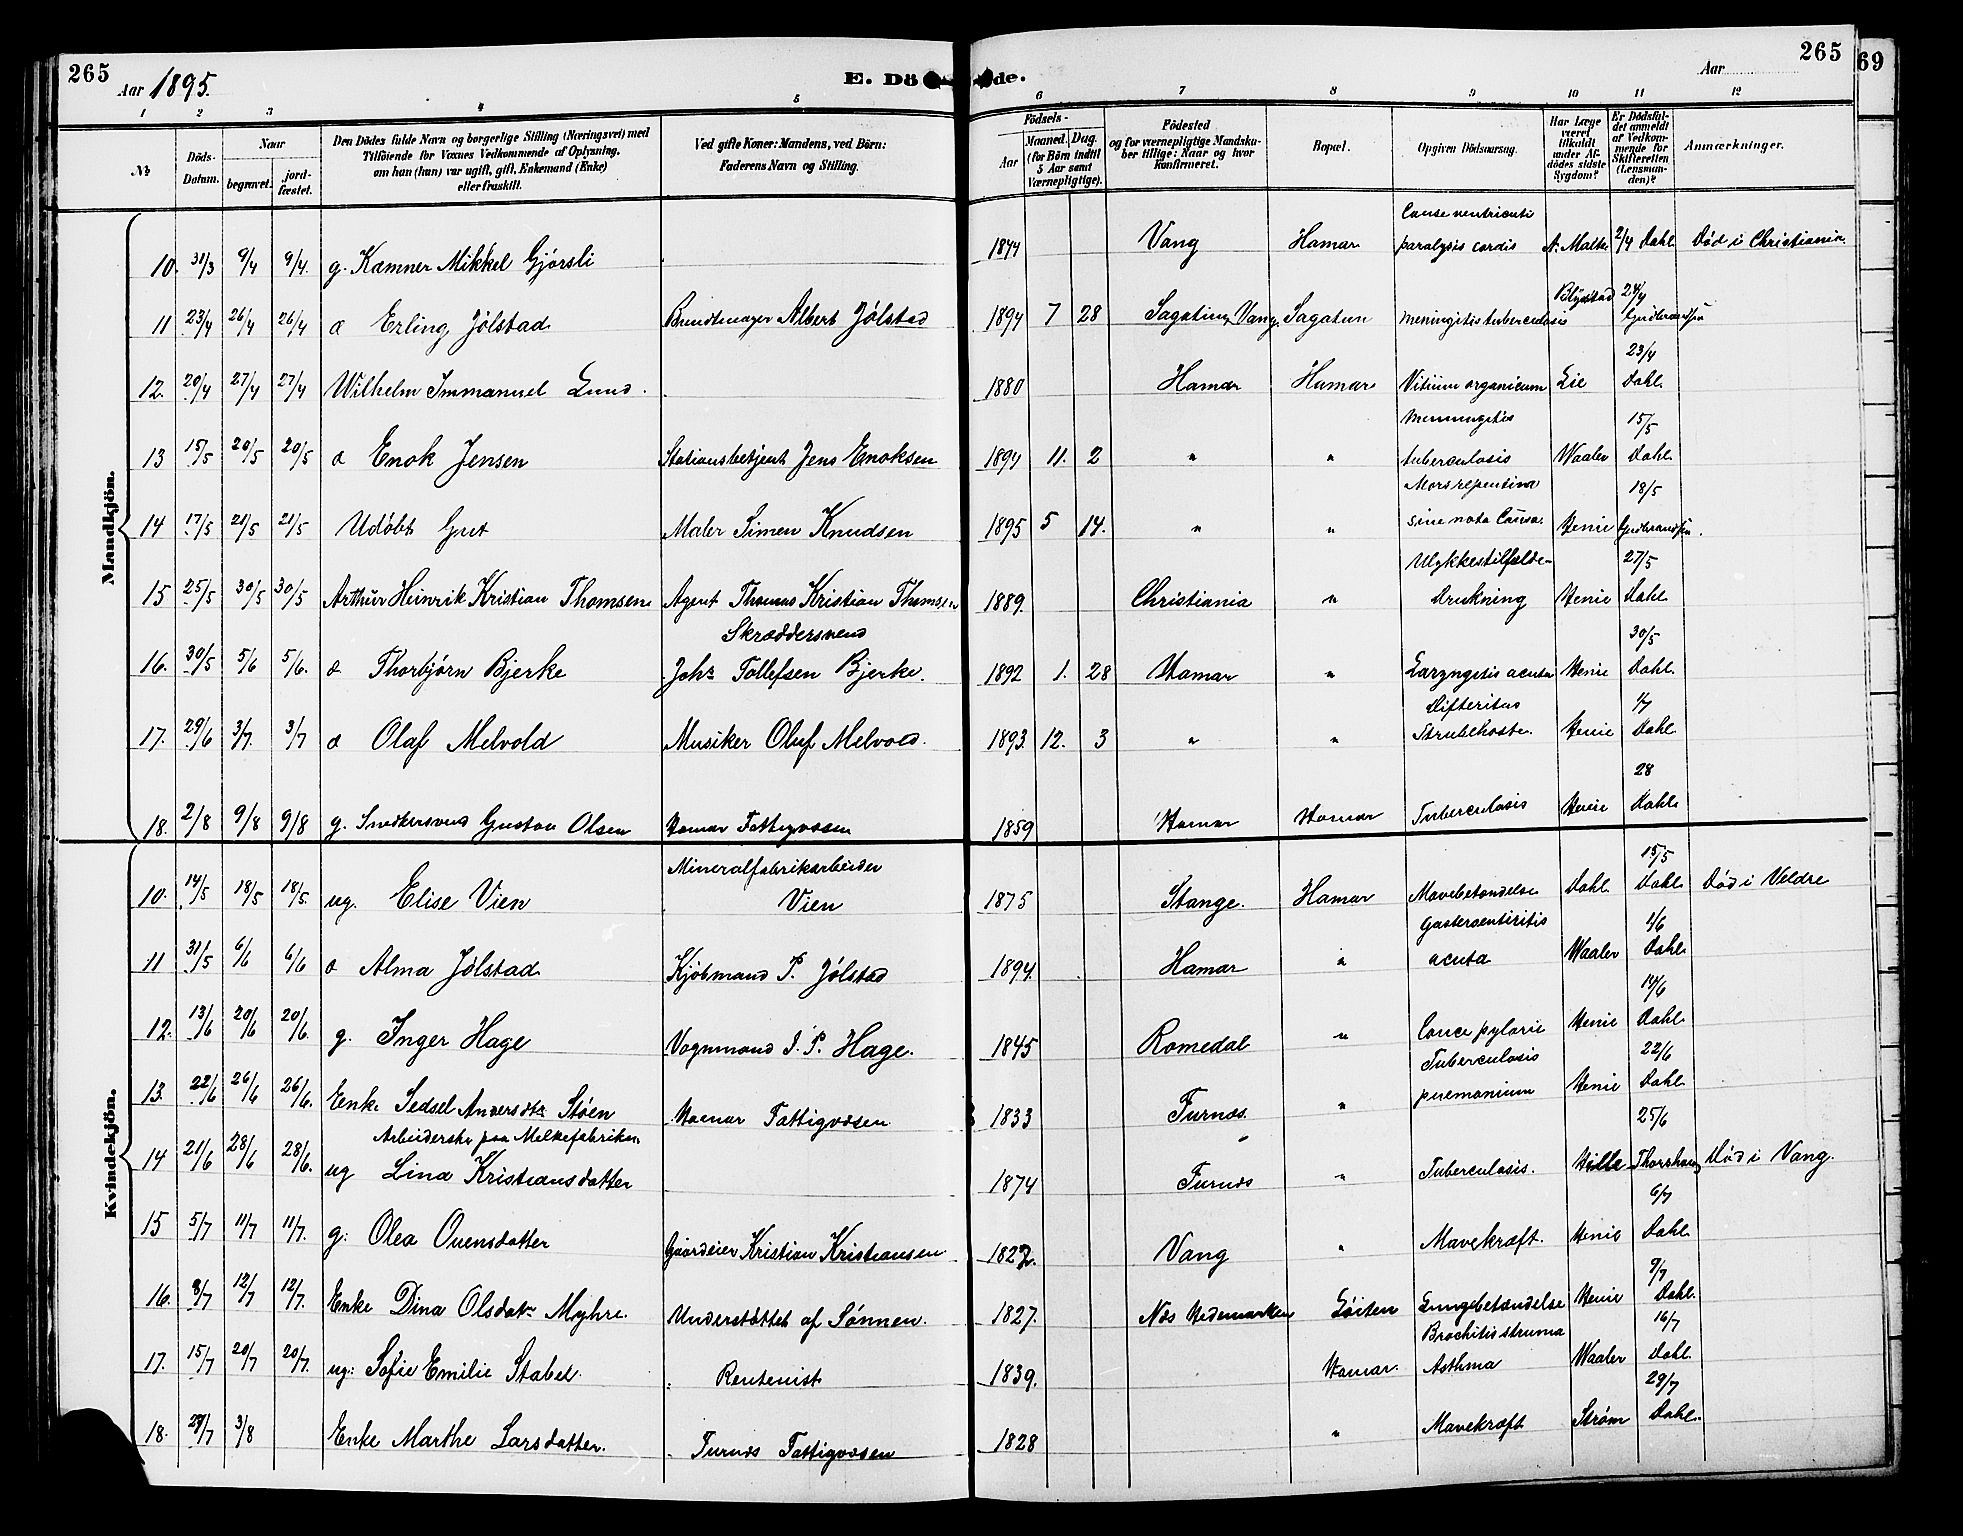 265
Aar 1895.
E. Dö de.
Aar
265
69
1 2 3 4 5 6 7 8 9 10 11 12
№
Döds-Datum.
Naar
begravet.
jord-fæstet.
Den Dödes fulde Navn og borgerlige Stilling (Næringsvei) med
Tilföiende for Voxnes Vedkommende af Oplysning,
om han (hun) var ugift, gift, Enkemand (Enke)
eller fraskilt.
Ved gifte Koner: Mandens, ved Börn:
Faderens Navn og Stilling.
Födsels-
Aar
Maaned. Dag.
(for Börn indtil
5 Aar samt
Værnepligtige).
Födested
og for værnepligtige Mandskaber tillige: Naar og hvor
konfirmeret.
Bopæl.
Opgiven Dödsaarsag.
Har Læge
været
tilkaldt
under Afdödes sidste
Sygdom?
Er Dödsfaldet anmeldt
af Vedkommende for
Skifteretten
(Lensmanden)?
Anmærkninger.
Mandkjön.
10. 31/3 9/4 9/4. g. Kæmner Mikkel Gjörsli 1844 Vang Hamar paralysis cordis 2/4 Dahl Död i Christiania.
11 23/4 26/4 26/4 d Erling Jölstad Albert Jölstad 1894 7 28 Sagatun, Vang. Sagatun meningitis tuberculosis 24/4 Gudbrandsen
12. 20/4 27/4 27/4 Wilhelm Immanuel Lund. 1880 Hamar Hamar Vitium organicum Lie 23/4 Dahl.
13 15/5 20/5 20/5 d Enok Jensen Stationsbetjent Jens Enoksen 1894 11. 2 " " Menningitis tuberculosis Waaler 15/5 Dahl.
14 17/5 21/5 21/5 Udöbt Gut Maler Simen Knudsen 1895 5 14. " " Mors repentina sine nota Causa. Henie 18/5 Gudbrandsen.
15 25/5 30/5 30/5 Arthur Heinrik Kristian Thomsen Agent Thomas Kristian Thomsen 1889. Christiania " Ulykkestilfælde- Drukning Henie 27/5 Dahl.
16. 30/5 5/6 5/6. d Thorbjörn Bjerke Skræddersvend Johs Tollefsen Bjerke. 1892 1. 28 Hamar " Laryngitis acuta Henie 30/5 Dahl.
17. 29/6 3/7. 3/7 d Olaf Melvold Musiker Oluf Melvold. 1893. 12. 3 " " Difteritus Strubehoste. Henie 1/7 Dahl
18. 2/8 9/8 9/8 g. Snedkersvend Gustav Olsen Hamar Fattigvæsen 1859 Hamar Hamar Tuberculosis Henie 28 Dahl.
Kvindekjön.
10. 14/5 18/5 18/5. ug. Elise Vien Mineralfabrikarbeider Vien 1875 Stange. Hamar Mavebetændelse Dahl. 15/5 Dahl Död i Veldre
11 31/5 6/6 6/6 d Alma Jölstad Kjöbmand P. Jölstad 1894. Hamar " Gasteroentiritis acuta Waaler 1/6 Dahl.
12. 13/6 20/6 20/6. g. Inger Hage Vognmand I. P. Hage. 1845 Romedal " Cance pylorie Henie 14/6 Dahl.
13. 22/6 26/6 26/6. Enke Sedsel Andersdtr Stöen Hamar Fattigvæsen 1833 Furnæs " Tuberculosis pnemonium Henie 22/6 Dahl.
14 21/6 28/6 28/6. Arbeiderske paa Melkefabriken ug Lina Kristiansdatter 1874 Furnæs " Tuberculosis. Hille 25/6 Död i Vang.
15 5/7 11/7 11/7. g: Olea Ovensdatter Gaardeier Kristian Kristiansen 1827. Vang " Mavekræft. Henie 6/7 Dahl.
16. 8/7 12/7 12/7. Enke Dina Olsdatr Myhre. Understöttet af Sönnen. 1827. Næs Hedemarken Löiten Lungebetændelse Henie 9/7 Dahl.
17. 15/7 20/7 20/7. ug: Sofie Emilie Stabel. Rentenist 1839. Hamar. Brochitis struma Asthma Waaler 16/7 Dahl.
18. 29/7 3/8 Enke Marthe Larsdatter. Furnæs Fattigvæsen 1828 " Mavekræft Ström 29/7 Dahl.